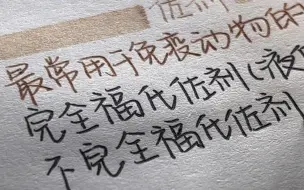 佐剂
最常用于免疫动物的
完全福氏佐剂(液
不完全福氏佐剂